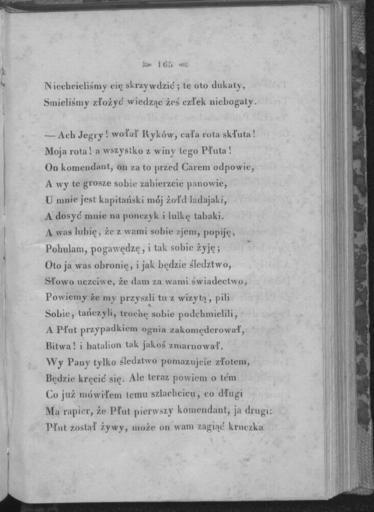 165
Niechcieliśmy cię skrzywdzić; te oto dukaty,
Smieliśmy złożyć wiedząc żeś człek niebogaty.
— Ach Jegry! wołał Ryków, cała rota skłuta!
Moja rota! a wszystko z winy tego Płuta!
On komendant, on za to przed Carem odpowie,
A wy te grosze sobie zabierzcie panowie,
U mnie jest kapitański mój żołd ladajaki,
A dosyć mnie na ponczyk i lulkę tabaki.
A was lubię, że z wami sobie zjem, popiję,
Pohulam, pogawędzę, i tak sobie żyję;
Oto ja was obronię, i jak będzie śledztwo,
Słowo uczciwe, że dam za wami świadectwo,
Powiemy że my przyszli tu z wizytą, pili
Sobie, tańczyli, trochę sobie podchmielili,
A Płut przypadkiem ognia zakomęderował,
Bitwa! i batalion tak jakoś zmarnował.
Wy Pany tylko śledztwo pomazujcie złotem,
Będzie kręcić się. Ale teraz powiem o tém
Co już mówiłem temu szlachcicu, co długi
Ma rapier, że Płut pierwszy komendant, ja drugi:
Płut został żywy, może on wam zagiąć kruczka